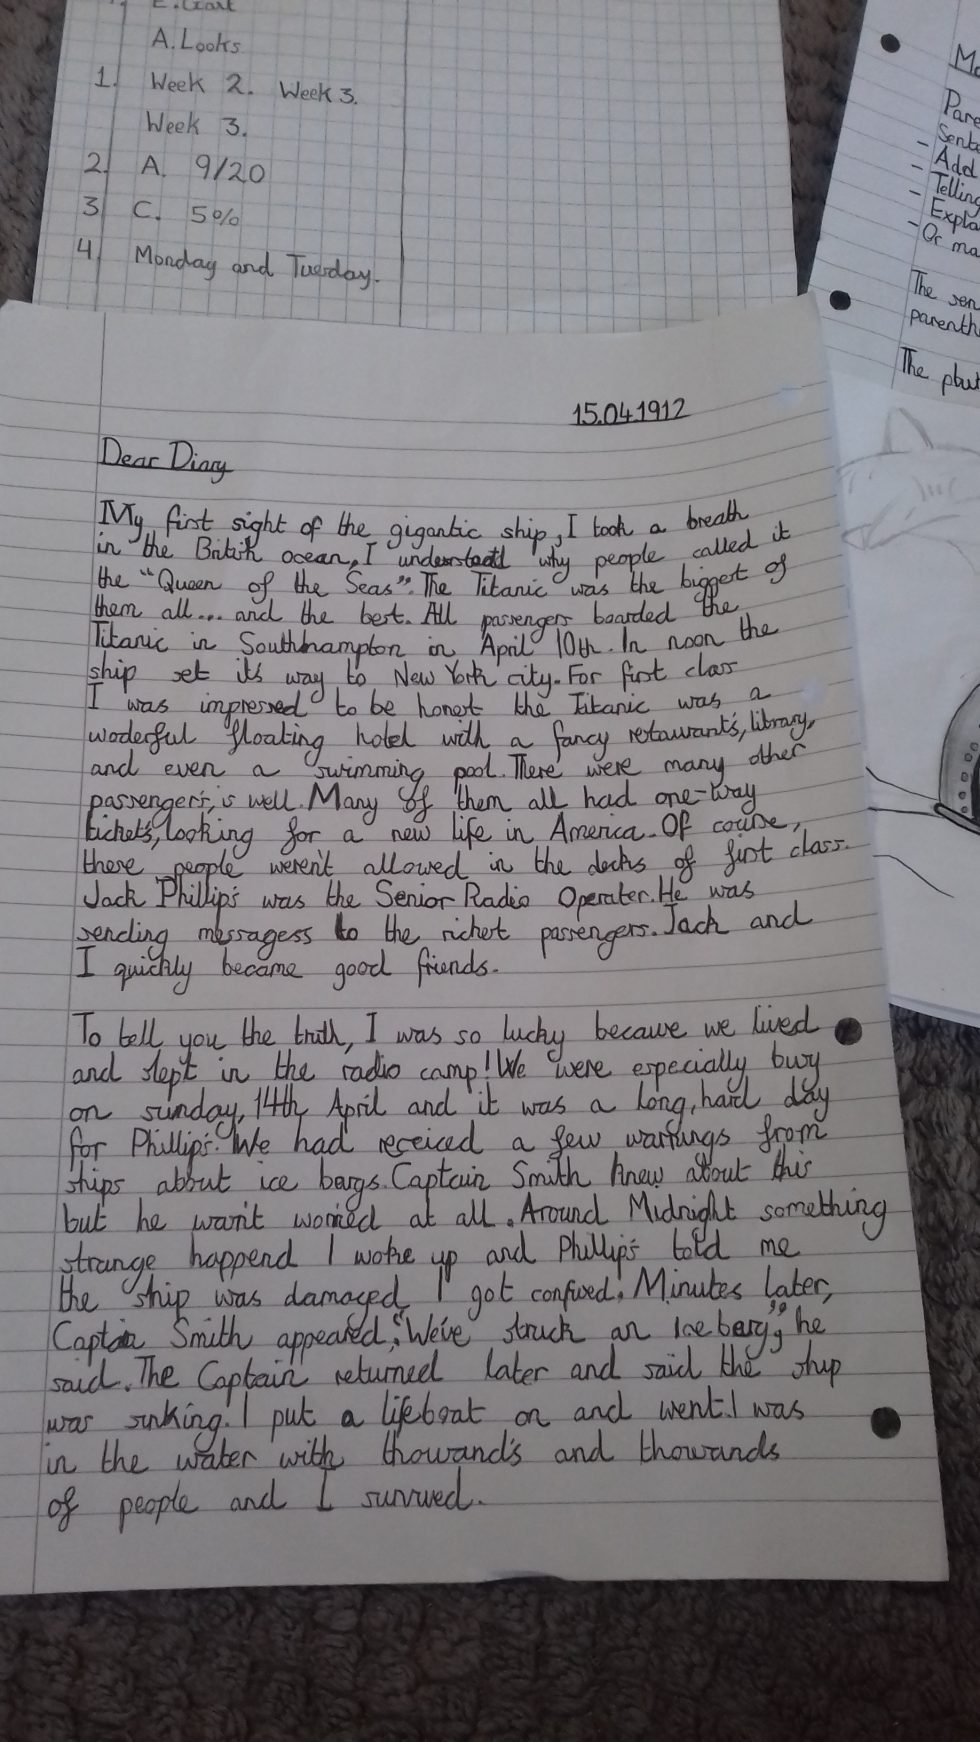 E. Craft
A. Looks
1. Week 2. Week 3.
Week 3.
2. A. 9/20
3. C. 5%
4. Monday and Tuesday.
Pare
Sente
- Add
- Telling
- Expla
- Or ma
The sen
parenth
The plut
15.04.1912
Dear Diary
My first sight of the gigantic ship, I took a breath
in the British ocean, I understood why people called it
the "Queen of the Seas". The Titanic was the biggest of
them all... and the best. All passengers boarded the
Titanic in Southhampton in April 10th. In noon the
ship set it's way to New York city. For first class
I was impressed to be honest the Titanic was a
woderful floating hotel with a fancy restaurant's, library,
and even a swimming pool. There were many other
passenger's, is well. Many of them all had one-way
ticket's, looking for a new life in America. Of course,
these people weren't allowed in the decks of first class.
Jack Phillip's was the Senior Radio Operater. He was
sending messagess to the richest passengers. Jack and
I quickly became good friends.
To tell you the truth, I was so lucky because we lived
and slept in the radio camp! We were especially busy
on sunday, 14th April and it was a long, hard day
for Phillip's. We had receiced a few warnings from
ships about ice bergs. Captain Smith knew about this
but he wasn't worried at all. Around Midnight something
strange happend I woke up and Phillip's told me
the ship was damaged, I got confused. Minutes later,
Captain Smith appeared, "We've struck an Ice berg", he
said. The Captain returned later and said the ship
was sinking. I put a lifeboat on and went. I was
in the water with thousand's and thousands
of people and I survived.